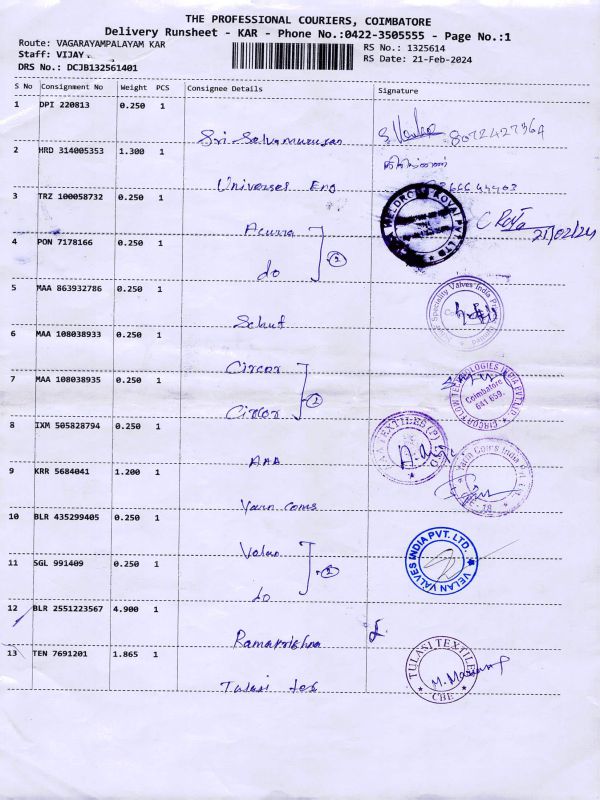 THE PROFESSIONAL COURIERS, COIMBATORE
Delivery Runsheet - KAR - Phone No.:0422-3505555 - Page No.:1
Route: VAGARAYAMPALAYAM KAR
RS No.: 1325614
Staff: VIJAY
RS Date: 21-Feb-2024
DRS No.: DCJB132561401
S No Consignment No Weight PCS Consignee Details Signature
1 DPI 220813 0.250 1
Sri Selvamurugan 8072427364
2 HRD 314005353 1.300 1
Universes Eng
3 TRZ 100058732 0.250 1
Acurra 21/02/24
4 PON 7178166 0.250 1
do 2
5 MAA 863932786 0.250 1
Speciality Valves India
6 MAA 108038933 0.250 1
Circor
7 MAA 108038935 0.250 1
Circor 2
CIRCOR FLOW TECHNOLOGIES INDIA PVT LTD.
Coimbatore
641 659.
8 IXM 505828794 0.250 1
AAA
TEXTILES (P)
9 KRR 5684041 1.200 1
Varn Coms
10 BLR 435299405 0.250 1
Velan
11 SGL 991409 0.250 1
do 2
VELAN VALVES INDIA PVT. LTD.
12 BLR 2551223567 4.900 1
Ramakrishna
13 TEN 7691201 1.865 1
Tulasi tex
TULASI TEXTILE
CBE